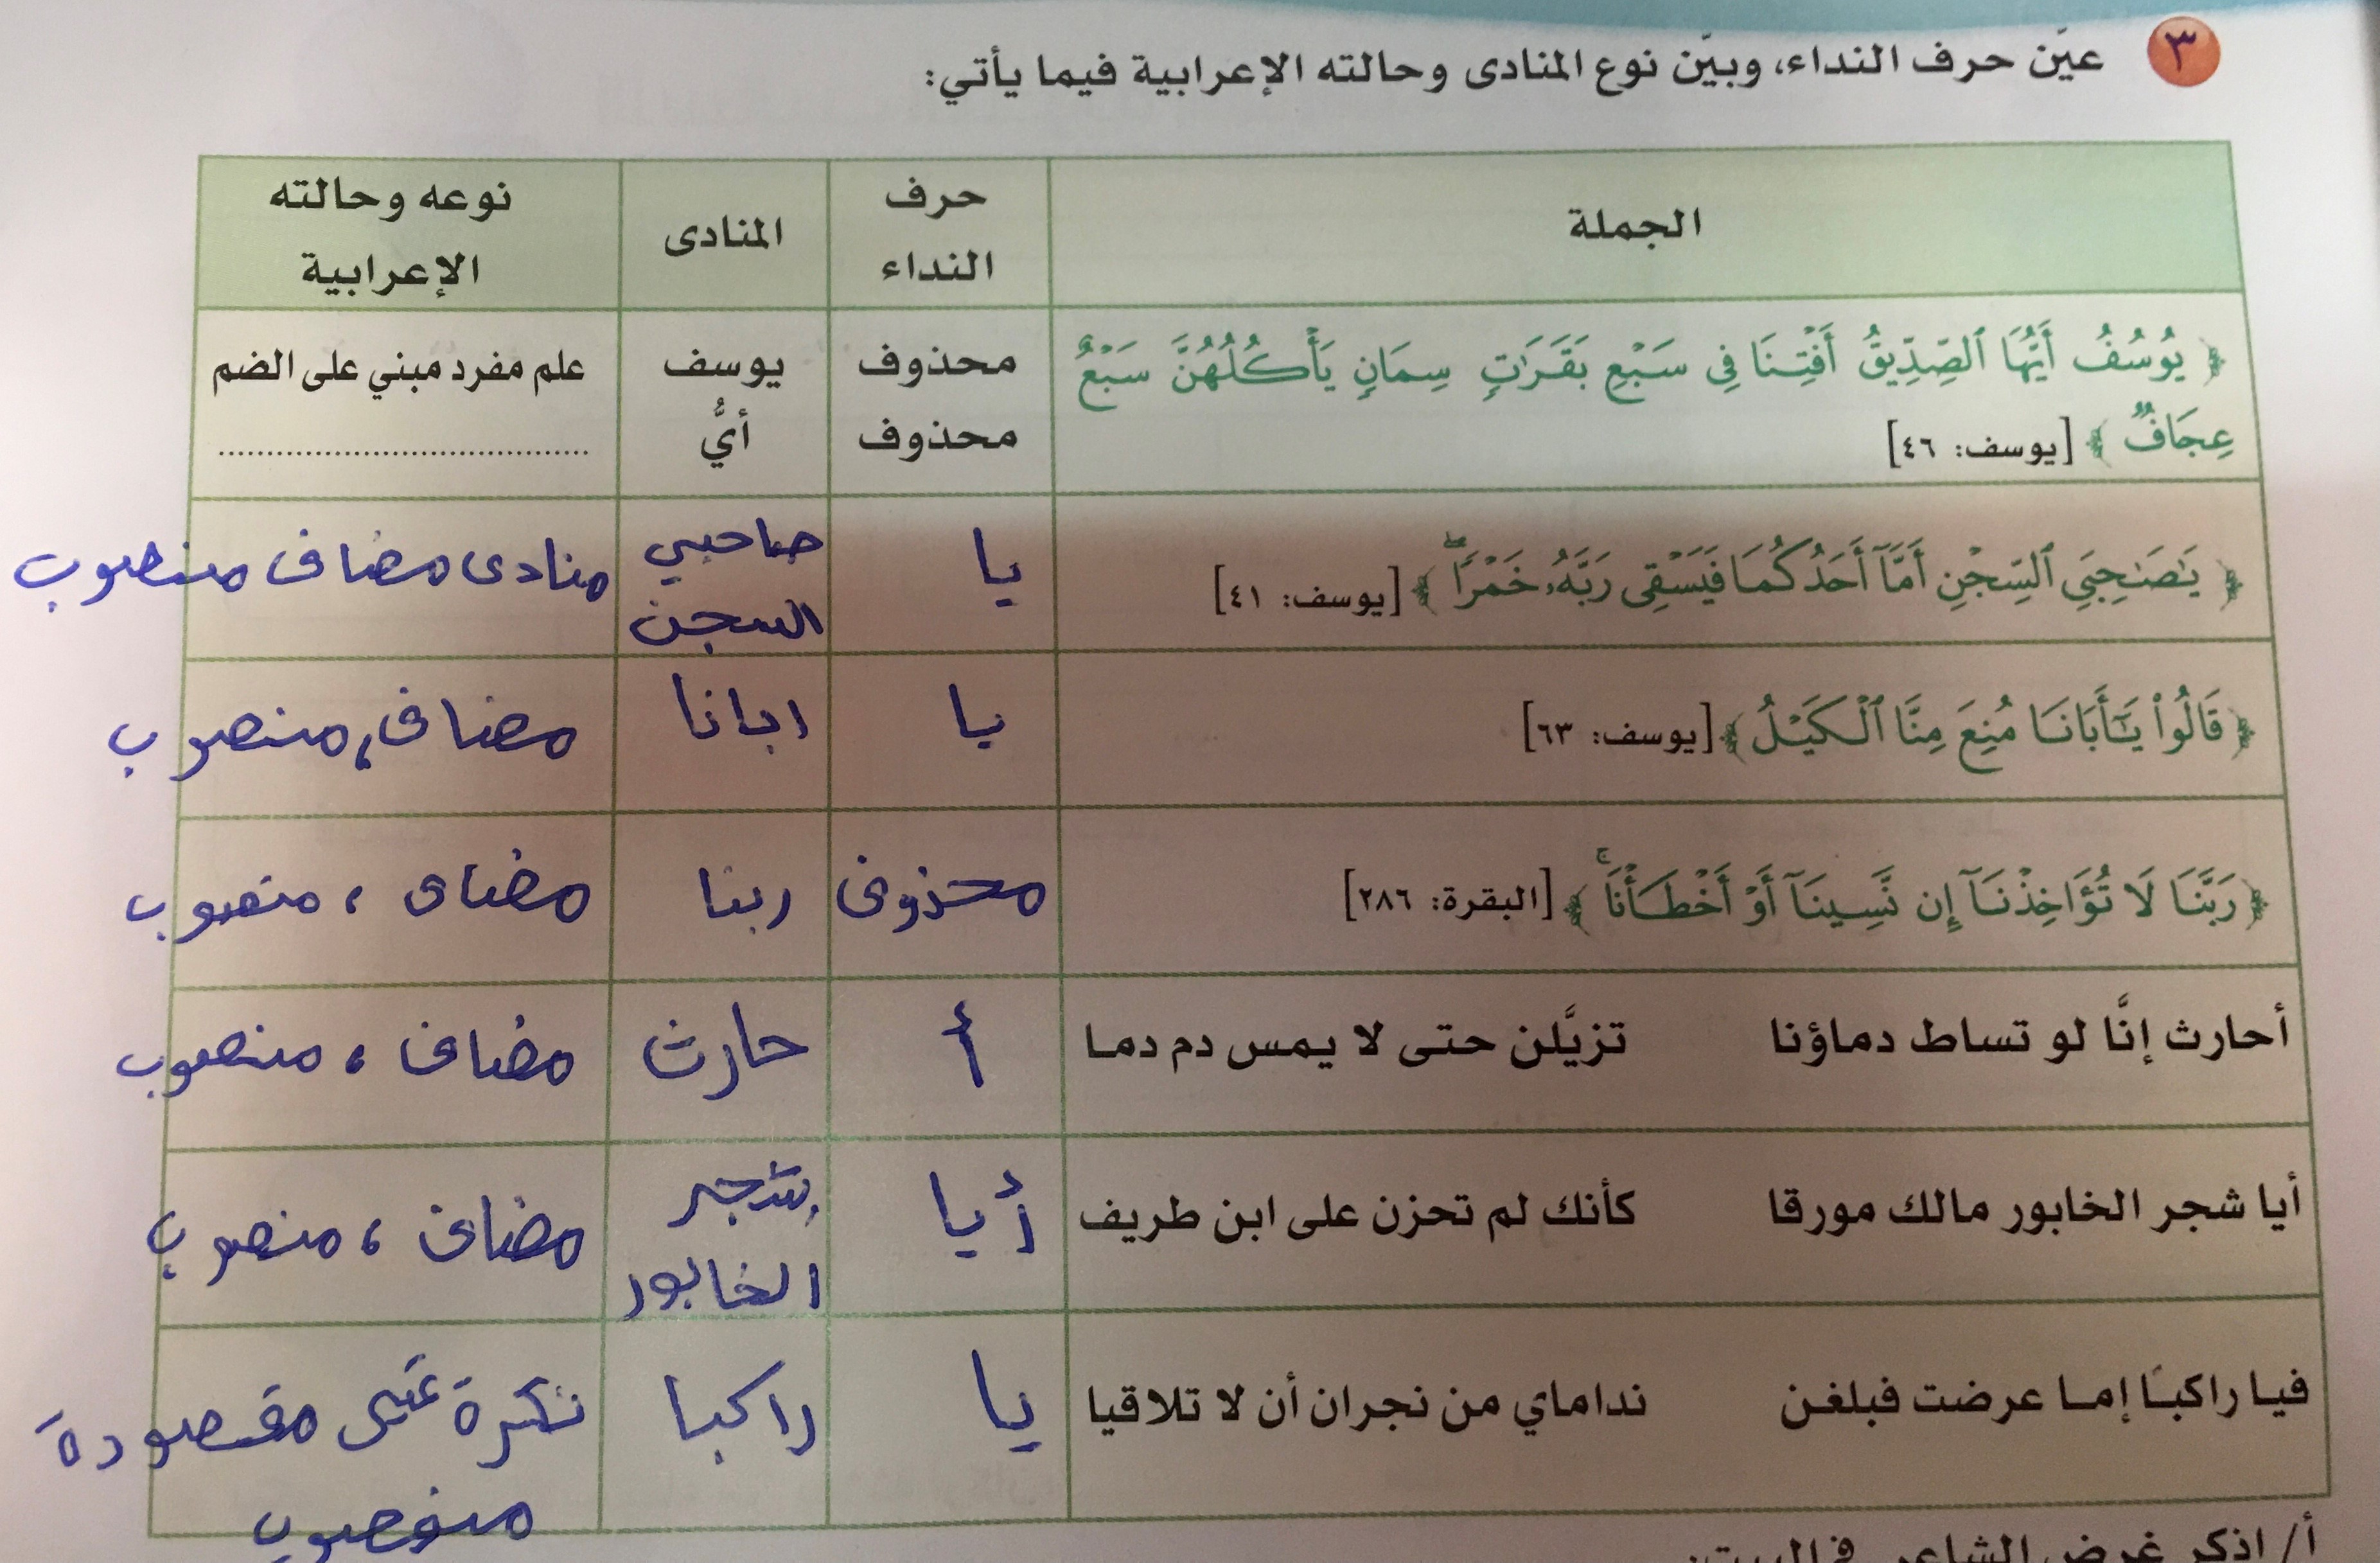 ٣ عيّن حرف النداء، وبيّن نوع المنادى وحالته الإعرابية فيما يأتي:
الجملة
حرف
النداء
المنادى
نوعه وحالته
الإعرابية
﴿ يُوسُفُ أَيُّهَا ٱلصِّدِّيقُ أَفْتِنَا فِي سَبْعِ بَقَرَٰتٍ سِمَانٍ يَأْكُلُهُنَّ سَبْعٌ
عِجَافٌ ﴾ [يوسف: ٤٦]
محذوف
محذوف
يوسف
أيُّ
علم مفرد مبني على الضم
......................................
﴿ يَٰصَٰحِبَيِ ٱلسِّجْنِ أَمَّآ أَحَدُكُمَا فَيَسْقِى رَبَّهُۥ خَمْرًاۖ ﴾ [يوسف: ٤١]
يا
صاحبي
السجن
منادى مضاف منصوب
﴿قَالُوا۟ يَٰٓأَبَانَا مُنِعَ مِنَّا ٱلْكَيْلُ﴾ [يوسف: ٦٣]
يا
ابانا
مضاف، منصوب
﴿رَبَّنَا لَا تُؤَاخِذْنَآ إِن نَّسِينَآ أَوْ أَخْطَأْنَاۚ ﴾ [البقرة: ٢٨٦]
محذوف
ربنا
مضاف ، منصوب
أحارث إنَّا لو تساط دماؤنا تزيَّلن حتى لا يمس دم دما
أ
حارث
مضاف ، منصوب
أيا شجر الخابور مالك مورقا كأنك لم تحزن على ابن طريف
أيا
شجر
الخابور
مضاف ، منصوب
فيا راكبـًا إمـا عرضت فبلغـن نداماي من نجران أن لا تلاقيا
يا
راكبا
نكرة غير مقصودة
منصوب
أ/ اذكر غرض الشاعر في البيت: